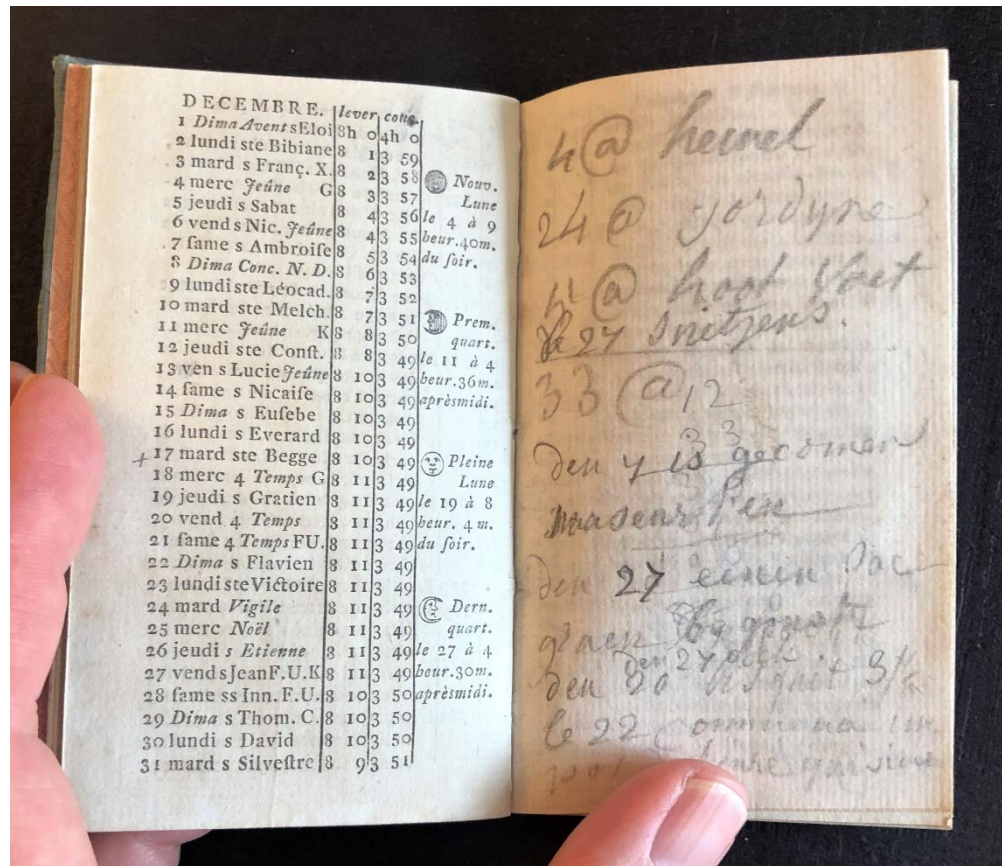 DECEMBRE. lever couc.
1 Dima Avent s Eloi 8h 0 4h 0
2 lundi ste Bibiane 8 1 3 59
3 mard s Franç. X. 8 2 3 58
4 merc Jeûne G 8 3 3 57
5 jeudi s Sabat 8 4 3 56
6 vend s Nic. Jeûne 8 4 3 55
7 ſame s Ambroiſe 8 5 3 54
8 Dima Conc. N. D. 8 6 3 53
9 lundi ste Léocad. 8 7 3 52
10 mard ste Melch. 8 7 3 51
11 merc Jeûne K 8 8 3 50
12 jeudi ste Conſt. 8 8 3 49
13 ven s Lucie Jeûne 8 10 3 49
14 ſame s Nicaiſe 8 10 3 49
15 Dima s Euſebe 8 10 3 49
16 lundi s Everard 8 10 3 49
+17 mard ste Begge 8 10 3 49
18 merc 4 Temps G 8 11 3 49
19 jeudi s Gratien 8 11 3 49
20 vend 4 Temps 8 11 3 49
21 ſame 4 Temps FU. 8 11 3 49
22 Dima s Flavien 8 11 3 49
23 lundi ste Victoire 8 11 3 49
24 mard Vigile 8 11 3 49
25 merc Noël 8 11 3 49
26 jeudi s Etienne 8 11 3 49
27 vend s Jean F.U.K 8 11 3 49
28 ſame ss Inn. F.U. 8 10 3 50
29 Dima s Thom. C. 8 10 3 50
30 lundi s David 8 10 3 50
31 mard s Silveſtre 8 9 3 51
Nouv.
Lune
le 4 à 9
heur. 40m.
du ſoir.
Prem.
quart.
le 11 à 4
heur. 36m.
aprèsmidi.
Pleine
Lune
le 19 à 8
heur. 4 m.
du ſoir.
Dern.
quart.
le 27 à 4
heur. 30m.
aprèsmidi.
4 @
24 @
@ hoot
27
33 @ 12
den is
den 27 eenen
den 27
den 20
le 22